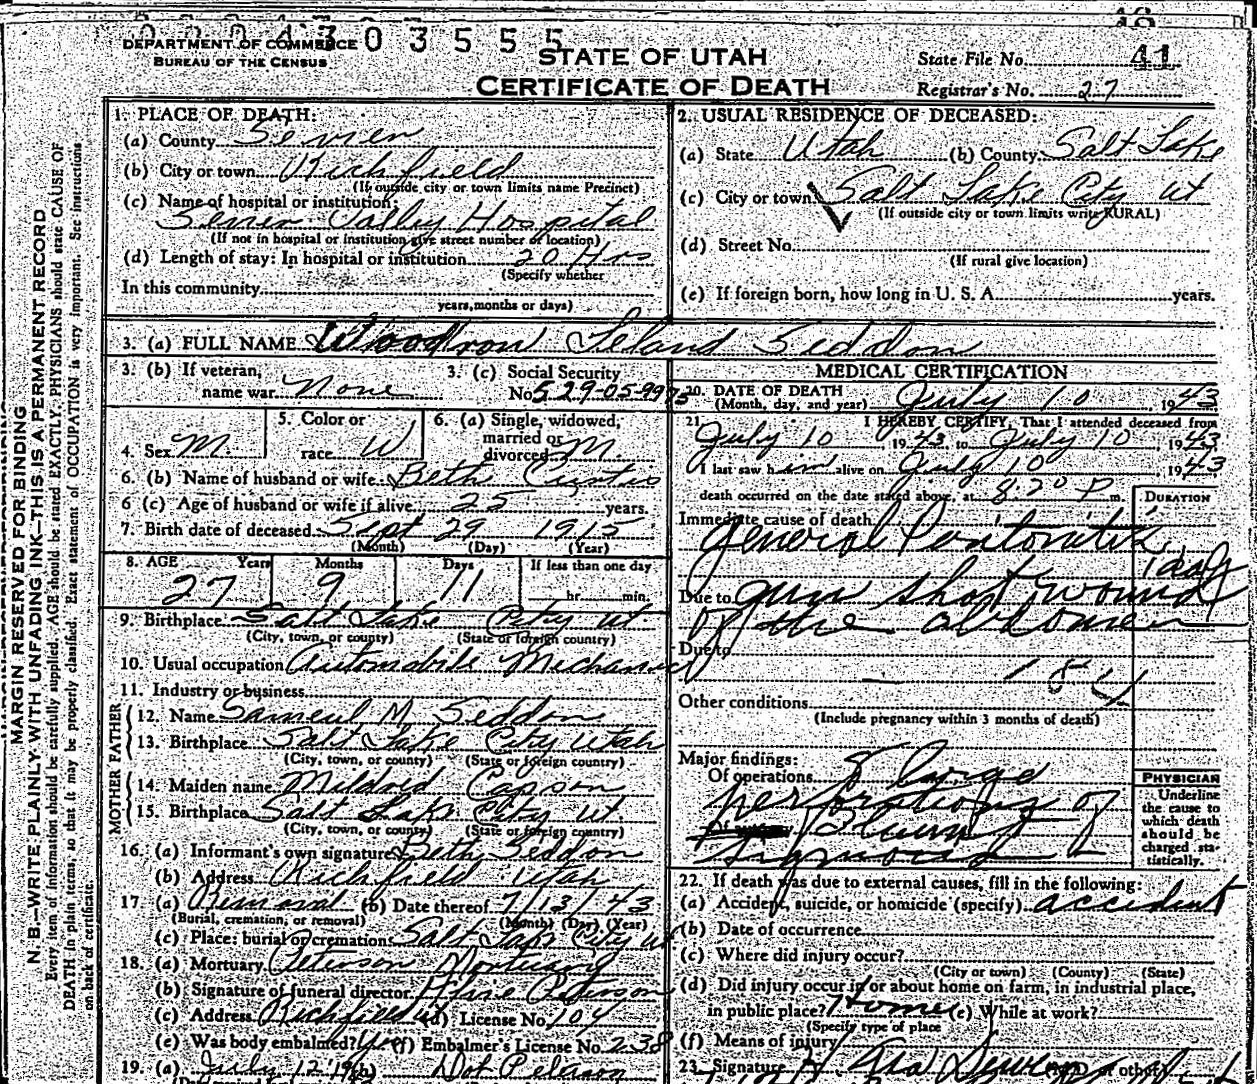 48
0 3 5 5 5
DEPARTMENT OF COMMERCE
BUREAU OF THE CENSUS
STATE OF UTAH
CERTIFICATE OF DEATH
State File No. 41
Registrar's No. 27
MARGIN RESERVED FOR BINDING
N. B.—WRITE PLAINLY WITH UNFADING INK—THIS IS A PERMANENT RECORD
Every item of information should be carefully supplied. AGE should be stated EXACTLY. PHYSICIANS should state CAUSE OF
DEATH in plain terms, so that it may be properly classified. Exact statement of OCCUPATION is very important. See instructions
on back of certificate.
1. PLACE OF DEATH:
(a) County Sevier
(b) City or town Richfield
(If outside city or town limits name Precinct)
(c) Name of hospital or institution:
Sevier Valley Hospital
(If not in hospital or institution give street number or location)
(d) Length of stay: In hospital or institution 20 Hrs
(Specify whether
In this community
years, months or days)
2. USUAL RESIDENCE OF DECEASED:
(a) State Utah (b) County Salt Lake
(c) City or town Salt Lake City Ut
(If outside city or town limits write RURAL)
(d) Street No.
(If rural give location)
(e) If foreign born, how long in U. S. A. years.
3. (a) FULL NAME Woodrow Leland Seddon
3. (b) If veteran,
name war None
3. (c) Social Security
No. 529-05-9973
4. Sex M.
5. Color or
race W
6. (a) Single, widowed,
married or
divorced M.
6. (b) Name of husband or wife Beth Curtis
6 (c) Age of husband or wife if alive 25 years.
7. Birth date of deceased Sept 29 1915
(Month) (Day) (Year)
8. AGE Years Months Days If less than one day
27 9 11 hr. min.
9. Birthplace Salt Lake City Ut
(City, town, or county) (State or foreign country)
10. Usual occupation Automobile Mechanic
11. Industry or business
FATHER
12. Name Sameul M Seddon
13. Birthplace Salt Lake City Utah
(City, town, or county) (State or foreign country)
MOTHER
14. Maiden name Mildred Capson
15. Birthplace Salt Lake City Ut.
(City, town, or county) (State or foreign country)
16. (a) Informant's own signature Beth Seddon
(b) Address Richfield Utah
17. (a) Removal (b) Date thereof 7/13/43
(Burial, cremation, or removal) (Month) (Day) (Year)
(c) Place: burial or cremation Salt Lake City Ut
18. (a) Mortuary Peterson Mortuary
(b) Signature of funeral director Peterson
(c) Address Richfield Ut (d) License No. 104
(e) Was body embalmed? Yes (f) Embalmer's License No. 238
19. (a) July 12 19 Dot Peterson
MEDICAL CERTIFICATION
20. DATE OF DEATH
(Month, day, and year) July 10 1943
21. I HEREBY CERTIFY, That I attended deceased from
July 10 1943 to July 10 1943
I last saw him alive on July 10, 1943
death occurred on the date stated above, at 8:20 P m.
DURATION
Immediate cause of death
general Peritonitis
1 day
Due to gun shot wound
of the abdomen
Due to
184
Other conditions
(Include pregnancy within 3 months of death)
Major findings:
Of operations 8 large
perforations of
PHYSICIAN
Underline
the cause to
which death
should be
charged sta-
tistically.
22. If death was due to external causes, fill in the following:
(a) Accident, suicide, or homicide (specify) accident
(b) Date of occurrence
(c) Where did injury occur?
(City or town) (County) (State)
(d) Did injury occur in or about home on farm, in industrial place,
in public place? Home (e) While at work?
(Specify type of place
(f) Means of injury
23. Signature